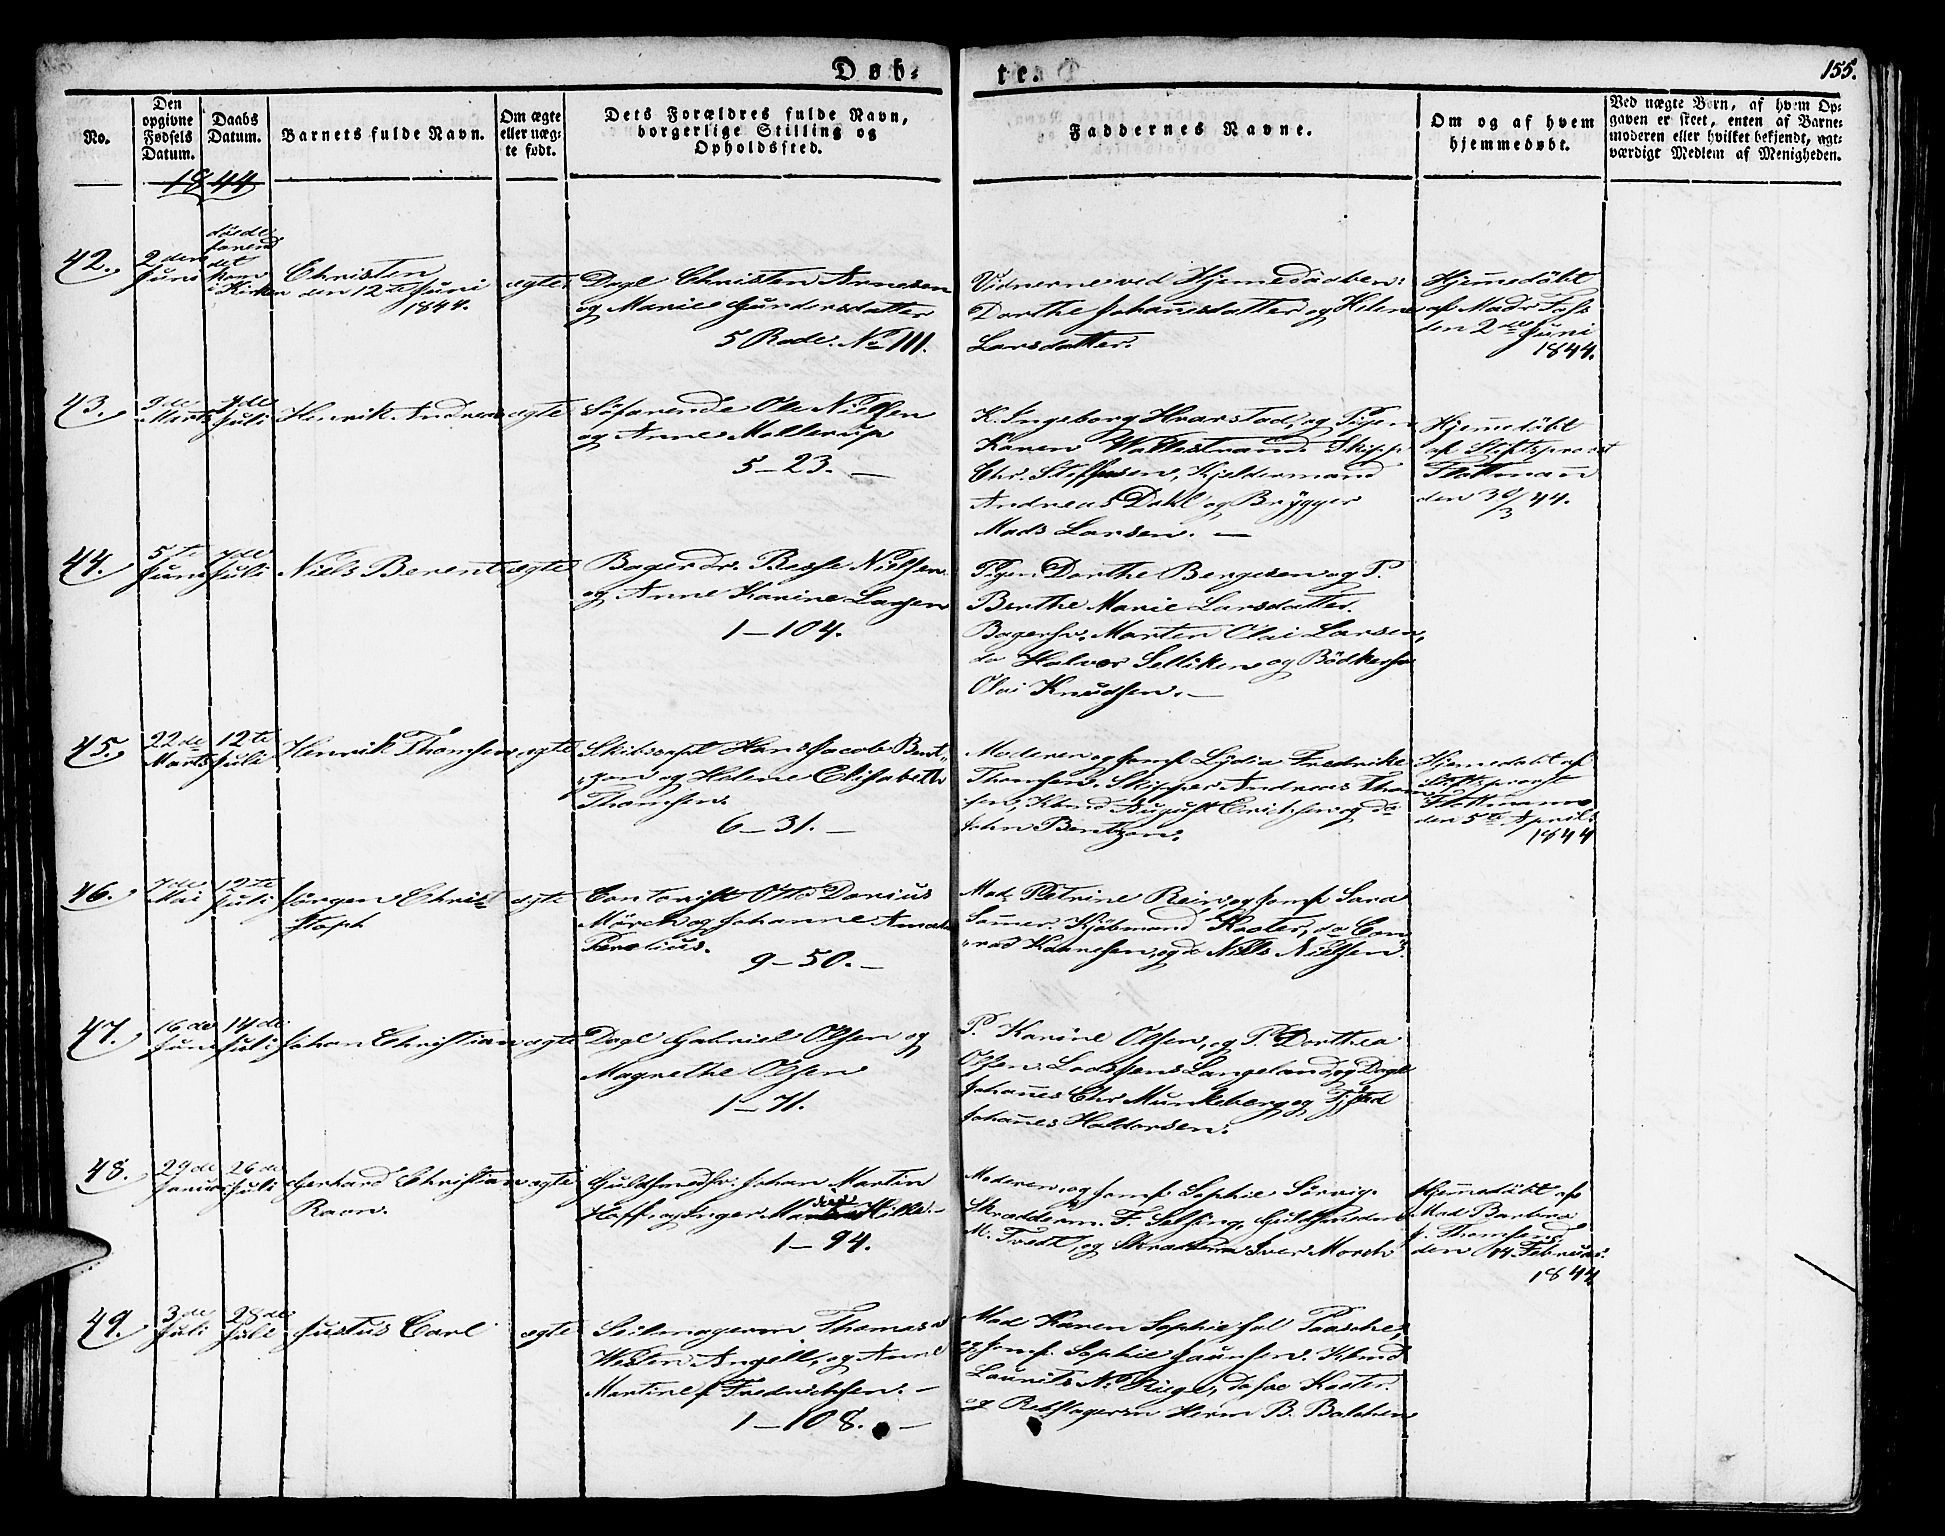 Døb-
te.
155.
No.
Den
opgivne
Fødsels
Datum.
Daabs
Datum.
Barnets fulde Navn.
Om ægte
eller uæg-
te født.
Dets Forældres fulde Navn,
borgerlige Stilling og
Opholdssted.
Faddernes Navne.
Om og af hvem
hjemmedøbt.
Ved uægte Børn, af hvem Op-
gaven er skeet, enten af Barne-
moderen eller hvilket bekjendt, agt-
værdigt Medlem af Menigheden.
1844
42.
2den
Juni
døde
førend
det
kom
i Kirken
Christen
den 12te Juni
1844.
ægte
Dagl Christen Arnesen
og Marie Gundersdatter
5 Rode. No 111.
Vidnerne ved Hjemedaaben:
Dorthe Johansdatter og Helene
Larsdatter.
Hjemedöbt
af Madr Foss
den 2de Juni
1844.
43.
9de
Marts
7de
Juli
Henrik Andreas
ægte
Söfarende Ole Nielsen
og Anne Mollerup
5 – 23. –
K. Ingeborg Hvarstad, og Pigen
Karen Wallestrand. Skipp.
Chr. Steffensen, Kjeldermand
Andreas Dahl og Brygger
Mads Larsen. –
Hjemedöbt
af Stiftsprovst
Flottmann
den 30/3 44.
44.
5te
Juni
7de
Juli
Niels Berent
ægte
Bagerdr. Basse Nielsen
og Anne Karine Larsen
1 – 104.
Pigen Dorthe Bergesen og P.
Berthe Marie Larsdatter.
Bagersv. Marten Olai Larsen,
do Halvor Selliken og Bödkersv
Olai Knudsen. –
45.
22de
Marts
12te
Juli
Henrik Thomsen
ægte
Skibscapt Hans Jacob Bent-
zon og Helene Elisabeth
Thomsen.
6 – 31. –
Moderen og Jomf Lydia Fredrike
Thomsen. Skipper Andreas Thom
sen, Kbmd August Erichsen og do
John Bentzon.
Hjemedöbt af
Stiftsprovst
Flottmann
den 5te April
1844
46.
7de
Mai
12te
Juli
Jörgen Christ
stoph
ægte
Contorist Otto Darius
Mörch og Johanne Amalia
9 – 50. –
Mad Petrine Rein, og Jomf Sara
Sömer. Kjöbmand Koster, do Con-
rad Hansen, og do Niels Nielsen.
47.
16de
Juni
14de
Juli
Johan Christian
ægte
Dagl Gabriel Olsen og
Magrethe Olsen
1 – 71.
P. Karine Olsen, og P. Dorthea
Olsen. Lods Jens Langeland, og Dagl
Johanes Chr Munkeberg og
Johanes Haldorsen.
48.
29de
Januar
26de
Juli
Gerhard Christian
Ravn.
ægte
Guldsmedsv. Johan Martin
Hoff og Inger Hille. –
1 – 94.
Moderen, og Jomf Sophie Sörvig.
Skrædderm. F. Selsing, Guldsmeden
M. Tvedt, og Skrædderm Iver Morch
Hjemedöbt af
Mad Barbra
J. Thomsen
den 14 Februar
1844
49.
3de
Juli
28de
Juli
Justus Carl
ægte
Seilmagerm. Thomas v
Westen Angell, og Anne
Martine f Fredrichsen. –
1 – 108. –
Mad Karen Sophie sal Paasche,
og Jomf. Sophie Jaunsen. Kbmd
Laurits N. Riege, do Koster.
og Rebslagerm Herm B. Balchen